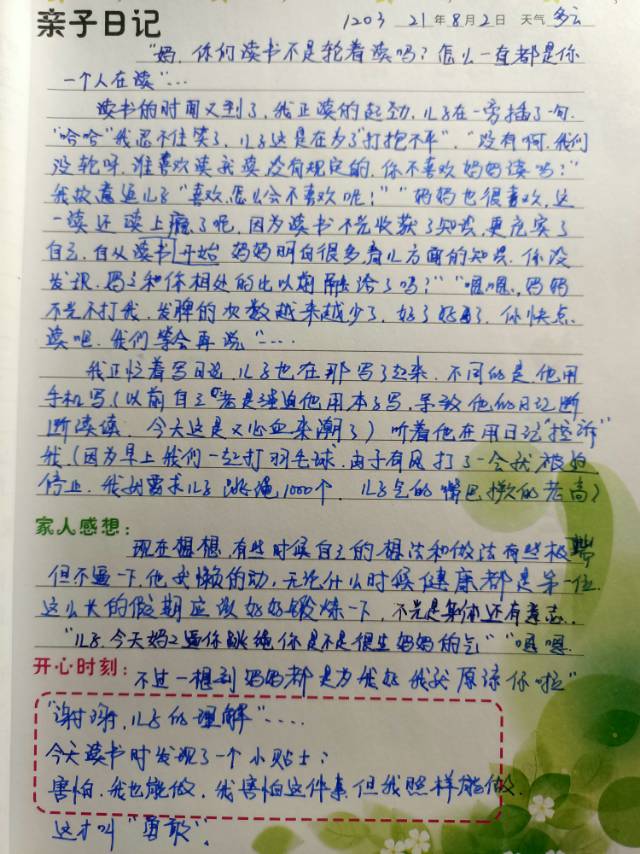 亲子日记 1203 21年8月2日 天气 多云
"妈,你们读书不是轮着读吗?怎么一直都是你
一个人在读"...
读书的时间又到了,我正读的起劲,儿子在一旁插了一句.
"哈哈"我忍不住笑了,儿子这是在为了"打抱不平"."没有啊,我们
没轮呀,谁喜欢读就读,没有规定的,你不喜欢妈妈读吗?"
我故意逗儿子"喜欢,怎么会不喜欢呢!""妈妈也很喜欢,这
一读还读上瘾了呢,因为读书不光收获了知识,更充实了
自己,自从读书开始 妈妈明白很多育儿方面的知识.你没
发现,妈妈和你相处的比以前融洽了吗?""嗯嗯,妈妈
不光不打我,发脾的次数越来越少了,好了好了,你快点
读吧,我们等会再说"....
我正忙着写日记,儿子也在那写了起来,不同的是他用
手机写(以前自己老是强迫他用本子写,导致他的日记断
断续续,今天这是又心血来潮了)听着他在用日记"控诉"
我.(因为早上我们一起打羽毛球,由于有风打了一会就被迫
停止,我就要求儿子跳绳1000个,儿子气的嘴巴撅的老高)
家人感想:
现在想想,有些时候自己的想法和做法有些极端
但不逼一下他,又懒的动,无论什么时候健康都是第一位.
这么长的假期应该好好锻炼一下,不光是身体还有意志.
"儿子,今天妈妈逼你跳绳你是不是很生妈妈的气""嗯嗯.
开心时刻:不过一想到妈妈都是为我好 我就原谅你啦"
"谢谢,儿子的理解"....
今天读书时发现了一个小贴士:
害怕,我也能做,我害怕这件事但我照样能做.
这才叫"勇敢".